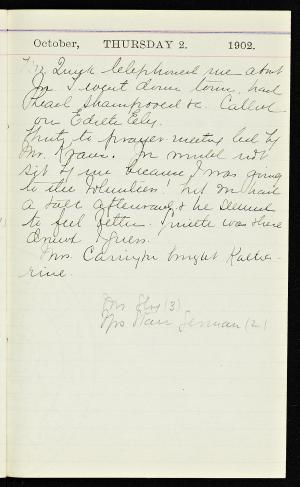 October, THURSDAY 2. 1902.
telephoned me about
Jim I went down town. had
head shampooed &c. Called
on Edith Ely.
to prayer meeting led by
Mr. Jim would not
sit by me because I was going
to the Volunteers! but we had
a talk afterwards & he seemed
to feel better. was there
I guess.
Mrs. brought Kathe-
rine.
Ely (3)
Mrs German (2)